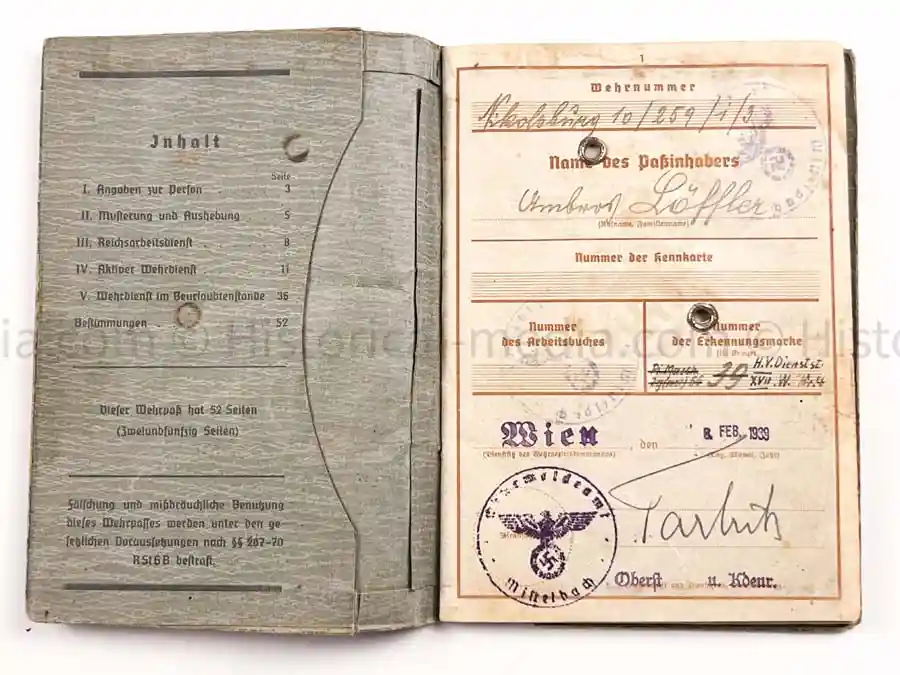 Inhalt
Seite
I. Angaben zur Person . 3
II. Musterung und Aushebung . 5
III. Reichsarbeitsdienst . . 8
IV. Aktiver Wehrdienst . . 11
V. Wehrdienst im Beurlaubtenstande 36
Bestimmungen . . 52
Dieser Wehrpaß hat 52 Seiten
(Zweiundfünfzig Seiten)
Fälschung und mißbräuchliche Benutzung
dieses Wehrpasses werden unter den ge
setzlichen Voraussetzungen nach §§ 267-70
RStGB bestraft.
1
Wehrnummer
Nikolsburg 10/259/1/3
Name des Paßinhabers
Ambros Löffler
(Rufname, Familienname)
Nummer der Kennkarte
Nummer
des Arbeitsbuches
Nummer
der Erkennungsmarke
39 H.V. Dienstst.
XVII. W. Nr.
Wien, den 8. FEB. 1939
(Dienstsitz des Wehrbezirkskommandos)
(Tag, Monat, Jahr)
Wehrmeldeamt
Mistelbach
Oberst u. Kdeur.
Historical-media.com ©